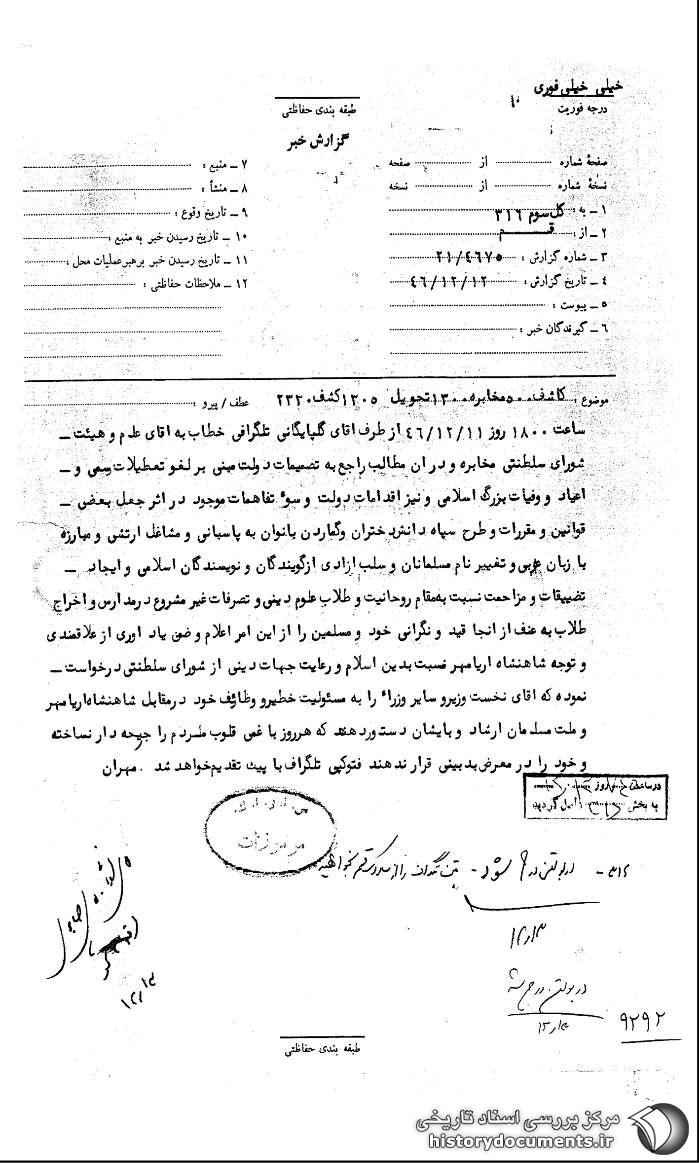 خیلی خیلی فوری
درجه فوریت
طبقه بندی حفاظتی
گزارش خبر
صفحهٔ شماره از صفحه
نسخهٔ شماره از نسخه
۱ ـ به : کل سوم ۳۱۶
۲ ـ از : قـــم
۳ ـ شماره گزارش : ۲۱/۴۶۷۵
۴ ـ تاریخ گزارش : ۴۶/۱۲/۱۲
۵ ـ پیوست :
۶ ـ گیرندگان خبر :
۷ ـ منبع :
۸ ـ منشأ :
۹ ـ تاریخ وقوع :
۱۰ ـ تاریخ رسیدن خبر به منبع :
۱۱ ـ تاریخ رسیدن خبر برهبرعملیات محل :
۱۲ ـ ملاحظات حفاظتی :
موضوع : کاشف ۵۰۰ مخابره ۱۳۰۰ تحویل ۱۳۰۵ کشف ۲۳۲۰ عطف / پیرو :
ساعت ۱۸۰۰ روز ۴۶/۱۲/۱۱ از طرف اقای گلپایگانی تلگرافی خطاب به اقای علم و هیئت ـ
شورای سلطنتی مخابره و در ان مطالب راجع به تصمیمات دولت مبنی بر لغو تعطیلات رسمی و ـ
اعیاد و وفیات بزرگ اسلامی و نیز اقدامات دولت و سوء تفاهمات موجود در اثر جعل بعضی ـ
قوانین و مقررات و طرح سپاه دانش دختران و گماردن بانوان به پاسبانی و مشاغل ارتشی و مبارزه
با زبان عربی و تغییر نام مسلمانان و سلب ازادی از گویندگان و نویسندگان اسلامی و ایجاد ـ
تضییقات و مزاحمت نسبت به مقام روحانیت و طلاب علوم دینی و تصرفات غیر مشروع در مدارس و اخراج
طلاب به عنف از انجا قید و نگرانی خود و مسلمین را از این امر اعلام و ضمن یاد اوری از علاقمندی
و توجه شاهنشاه اریامهر نسبت بدین اسلام و رعایت جهات دینی از شورای سلطنتی درخواست ـ
نموده که اقای نخست وزیر و سایر وزراء را به مسئولیت خطیر و وظائف خود در مقابل شاهنشاه اریامهر
و ملت مسلمان ارشاد و بایشان دستور دهند که هر روز با غمی قلوب مردم را جریحه دار نساخته
و خود را در معرض بدبینی قرار ندهند فتوکپی تلگراف با پیک تقدیم خواهد شد . مهران
در ساعت روز
به بخش اصل گردید
مرموزات
۳۱۶ ـ در بولتن درج شود ـ
۱۲/۱۳
در بولتن درج شد
۱۲/۱۳
۱۲/۱۳
۹۲۹۲
طبقه بندی حفاظتی
مرکز بررسی اسناد تاریخی
historydocuments.ir